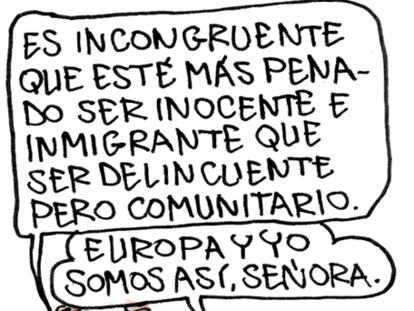 ES INCONGRUENTE
QUE ESTÉ MÁS PENA-
DO SER INOCENTE E
INMIGRANTE QUE
SER DELINCUENTE
PERO COMUNITARIO.
EUROPA Y YO
SOMOS ASÍ, SEÑORA.